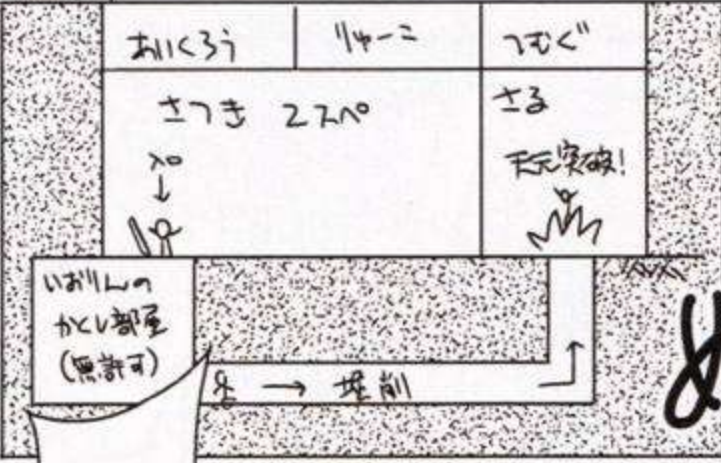 あいくろう
りゅーこ
つむぐ
さつき 2スペ
入口
↓
さる
天元突破!
いおりんの
かくし部屋
(無許可)
→ 掘削